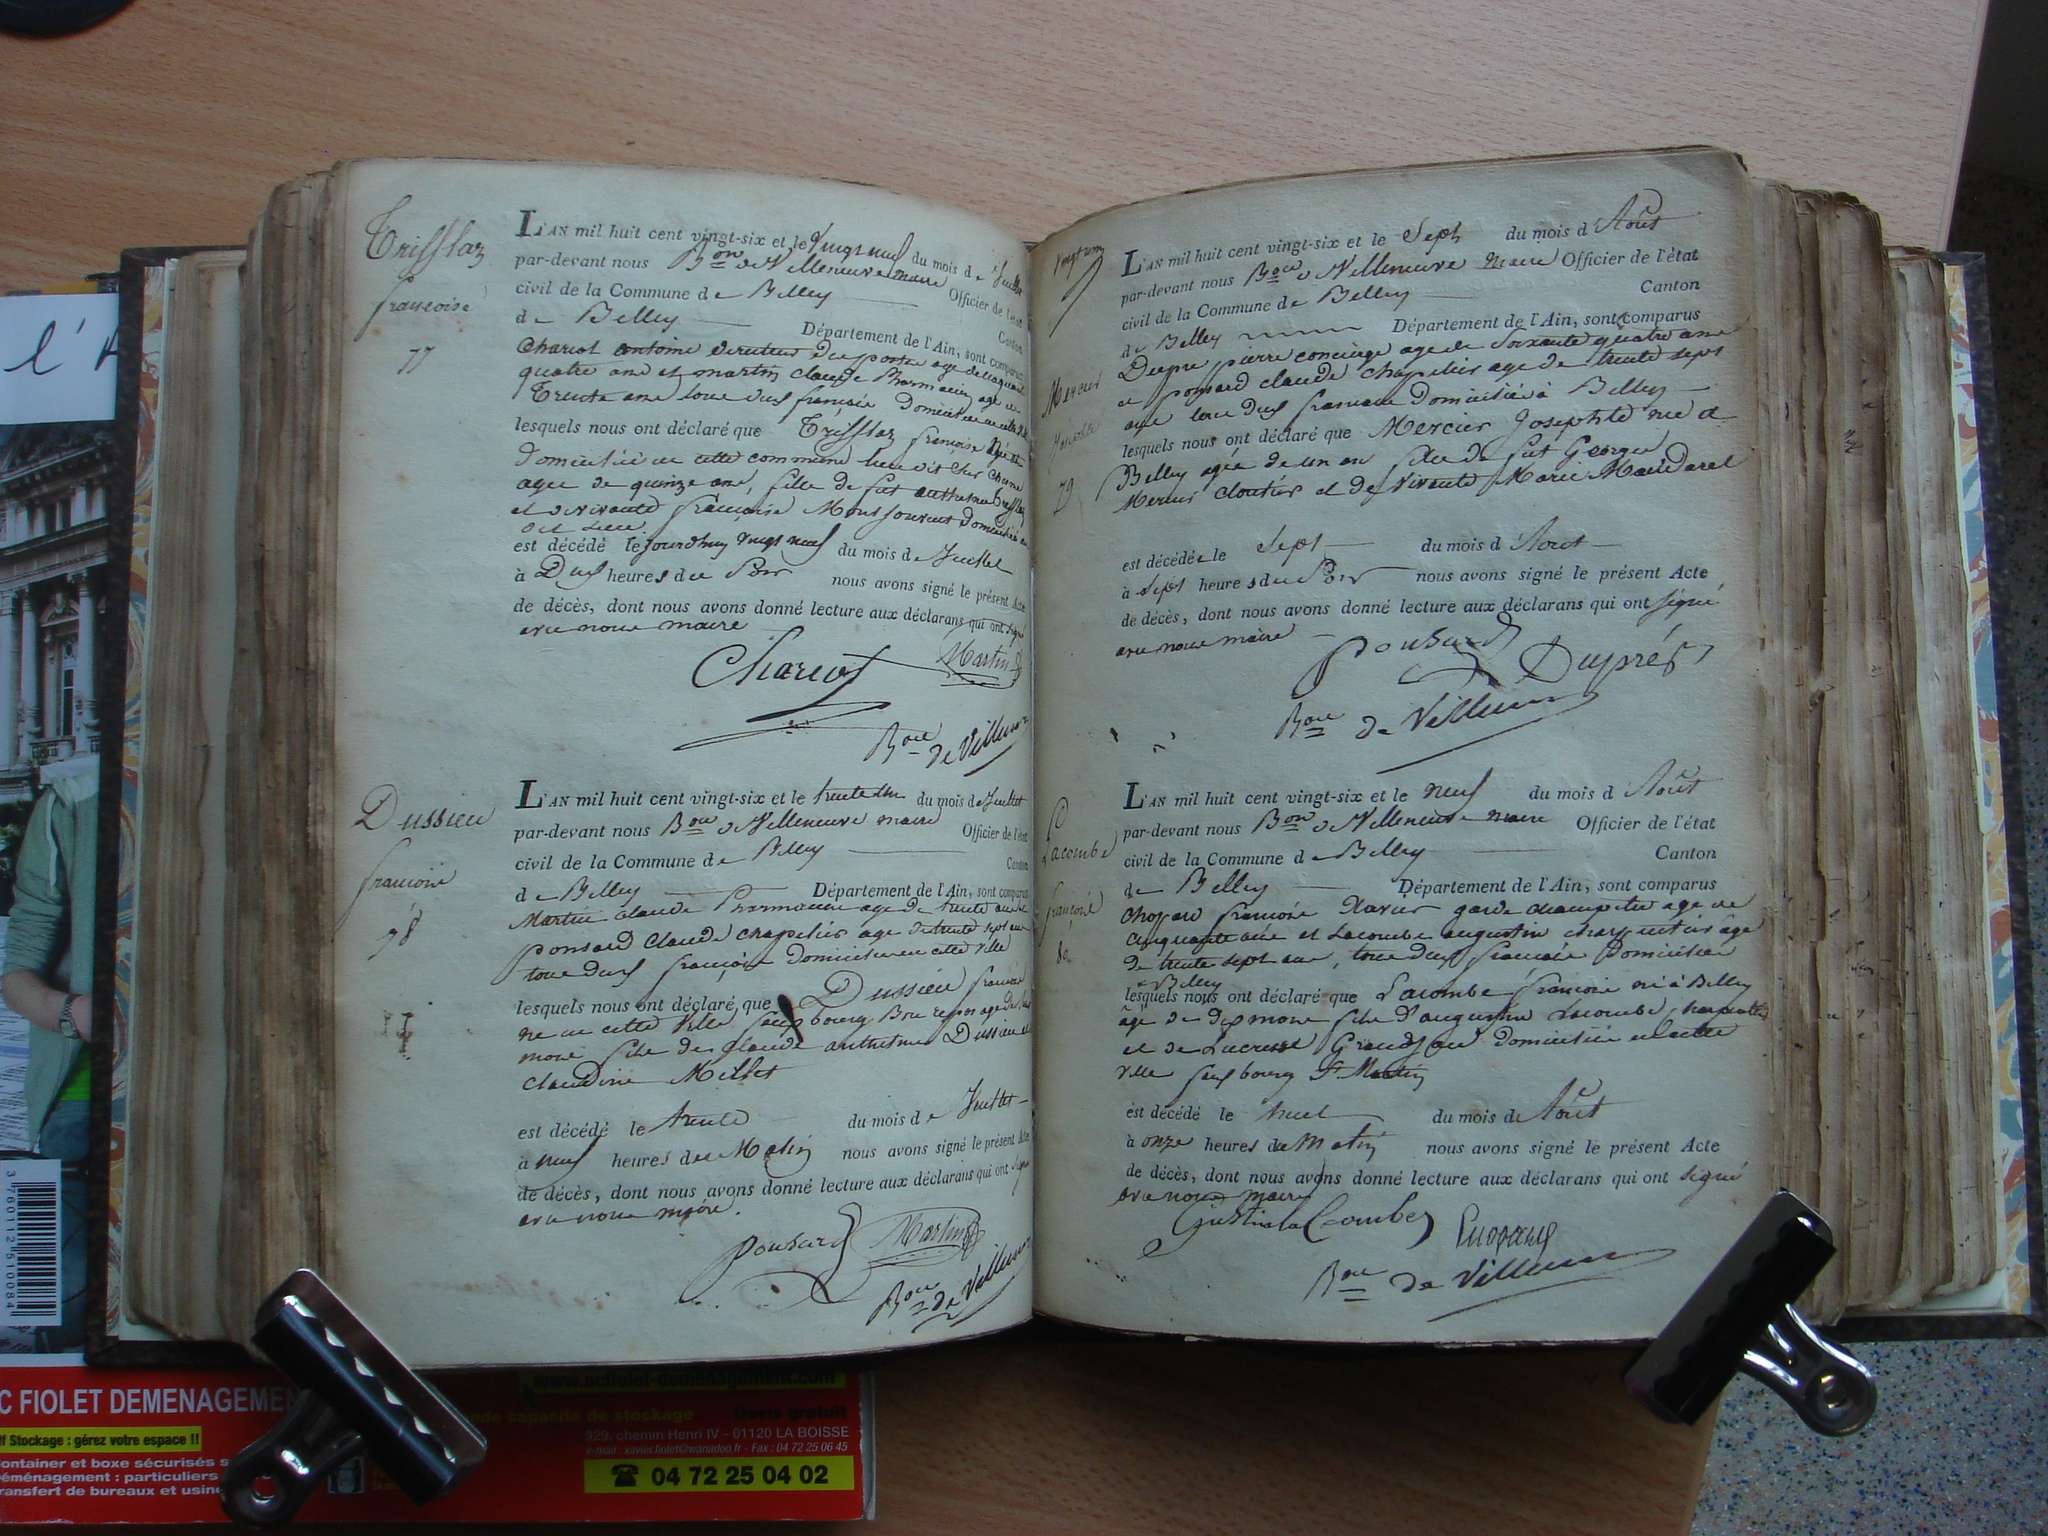 Trifflaz
françoise
77
L'AN mil huit cent vingt-six et le vingt neuf du mois de Juillet
par-devant nous Bon de Villeneuve maire Officier de l'état
civil de la Commune de Belley Canton
de Belley Département de l'Ain, sont comparus
Chariot antoine directeur des postes age de
quatre ans et martin Claude Pharmacien age de
Trente ans tous deux français domiciliés
lesquels nous ont déclaré que Trifflaz françoise
domiciliée en cette commune
agée de quinze ans, fille de fut anthelme Trifflaz
et de vivante françoise Montfouvent domiciliée
est décédé le jourdhuy vingt neuf du mois de Juillet
à Deux heures du Soir nous avons signé le présent Acte
de décès, dont nous avons donné lecture aux déclarans qui ont signé
avec nous maire
Chariot Martin
Bon de Villeneuve
Dussieu
françois
78
L'AN mil huit cent vingt-six et le trente un du mois de Juillet
par-devant nous Bon de Villeneuve maire Officier de l'état
civil de la Commune de Belley Canton
de Belley Département de l'Ain, sont comparus
Martin Claude Pharmacien age de trente ans et
ponsard Claude chapelier age de trente sept ans
tous deux français domiciliés en cette ville
lesquels nous ont déclaré que Dussieu françois
né en cette ville faubourg Bon repos age de
mois fils de Claude anthelme Dussieu et
Claudine Millet
est décédé le trente du mois de Juillet
à neuf heures du Matin nous avons signé le présent Acte
de décès, dont nous avons donné lecture aux déclarans qui ont signé
avec nous maire.
ponsard Martin
Bon de Villeneuve
Mercier
Josephte
79
L'AN mil huit cent vingt-six et le Sept du mois d Août
par-devant nous Bon de Villeneuve maire Officier de l'état
civil de la Commune de Belley Canton
de Belley Département de l'Ain, sont comparus
Dupre pierre concierge age de Soixante quatre ans
et ponsard claude chapelier age de trente sept
ans tous deux français domiciliés à Belley
lesquels nous ont déclaré que Mercier Josephte née à
Belley agée de un an fille de fut George
Mercier cloutier et de vivante Marie
est décédée le Sept du mois d Aout
à Sept heures du Soir nous avons signé le présent Acte
de décès, dont nous avons donné lecture aux déclarans qui ont signé
avec nous maire
ponsard Duprés
Bon de Villeneuve
Lacombe
françois
80
L'AN mil huit cent vingt-six et le neuf du mois d Août
par-devant nous Bon de Villeneuve maire Officier de l'état
civil de la Commune de Belley Canton
de Belley Département de l'Ain, sont comparus
Chopard françois Xavier garde champetre age de
cinquante ans et Lacombe augustin charpentier age
de trente sept ans, tous deux français domiciliés
à Belley
lesquels nous ont déclaré que Lacombe françois né à Belley
âgé de dix mois fils d'augustin Lacombe charpentier
et de Lucresse Grandjean domiciliés en cette
ville faubourg St Martin
est décédé le huit du mois de Août
à onze heures du Matin nous avons signé le présent Acte
de décès, dont nous avons donné lecture aux déclarans qui ont signé
avec nous maire
Bon de Villeneuve
l'A
3 760112 510084
C FIOLET DEMENAGEMEN
Stockage : gérez votre espace !!
ontainer et boxe sécurisés s
éménagement : particuliers
ransfert de bureaux et usine
www.acfiolet-demenagement.com
ande capacité de stockage Devis gratuit
929, chemin Henri IV - 01120 LA BOISSE
e-mail : xavier.fiolet@wanadoo.fr - Fax : 04 72 25 06 45
04 72 25 04 02